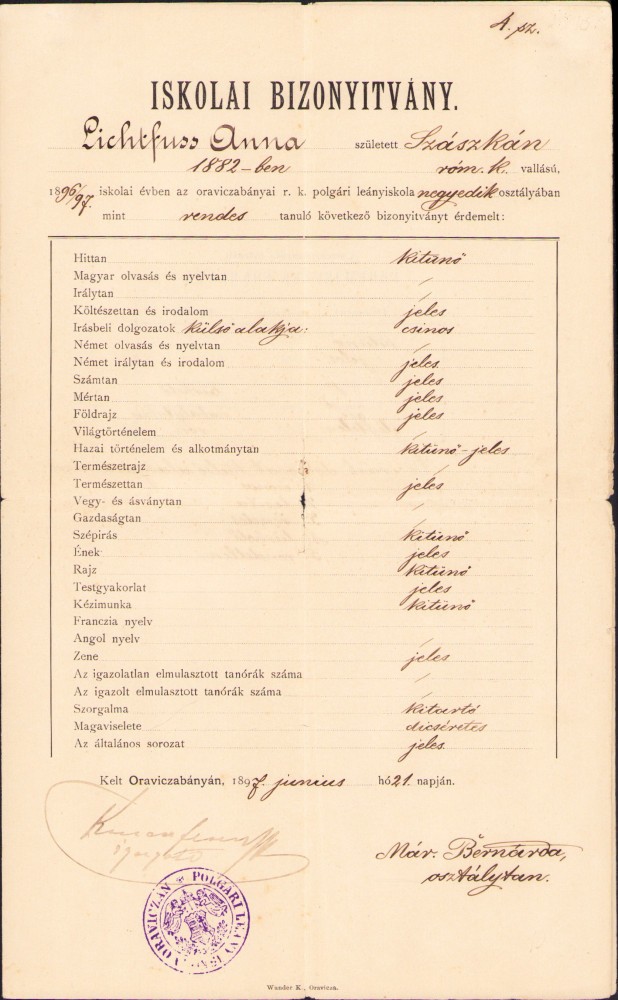 4. sz.
ISKOLAI BIZONYITVÁNY.
Lichtfuss Anna született Szászkán
1882-ben róm. k. vallású,
1896/97. iskolai évben az oraviczabányai r. k. polgári leányiskola negyedik osztályában
mint rendes tanuló következő bizonyitványt érdemelt:
Hittan kitünő
Magyar olvasás és nyelvtan /
Irálytan /
Költészettan és irodalom jeles
Irásbeli dolgozatok külső alakja: csinos
Német olvasás és nyelvtan /
Német irálytan és irodalom jeles.
Számtan jeles
Mértan jeles
Földrajz jeles
Világtörténelem /
Hazai történelem és alkotmánytan kitünő-jeles
Természetrajz /
Természettan jeles
Vegy- és ásványtan /
Gazdaságtan /
Szépirás kitünő
Ének jeles
Rajz kitünő
Testgyakorlat jeles
Kézimunka kitünő
Franczia nyelv
Angol nyelv /
Zene jeles
Az igazolatlan elmulasztott tanórák száma /
Az igazolt elmulasztott tanórák száma /
Szorgalma kitartó
Magaviselete dicséretes
Az általános sorozat jeles.
Kelt Oraviczabányán, 1897. junius hó 21. napján.
igazgató
Már. Bernarda,
osztálytan.
POLGÁRI LEÁNY ORAVICZÁN
Wunder K., Oravicza.